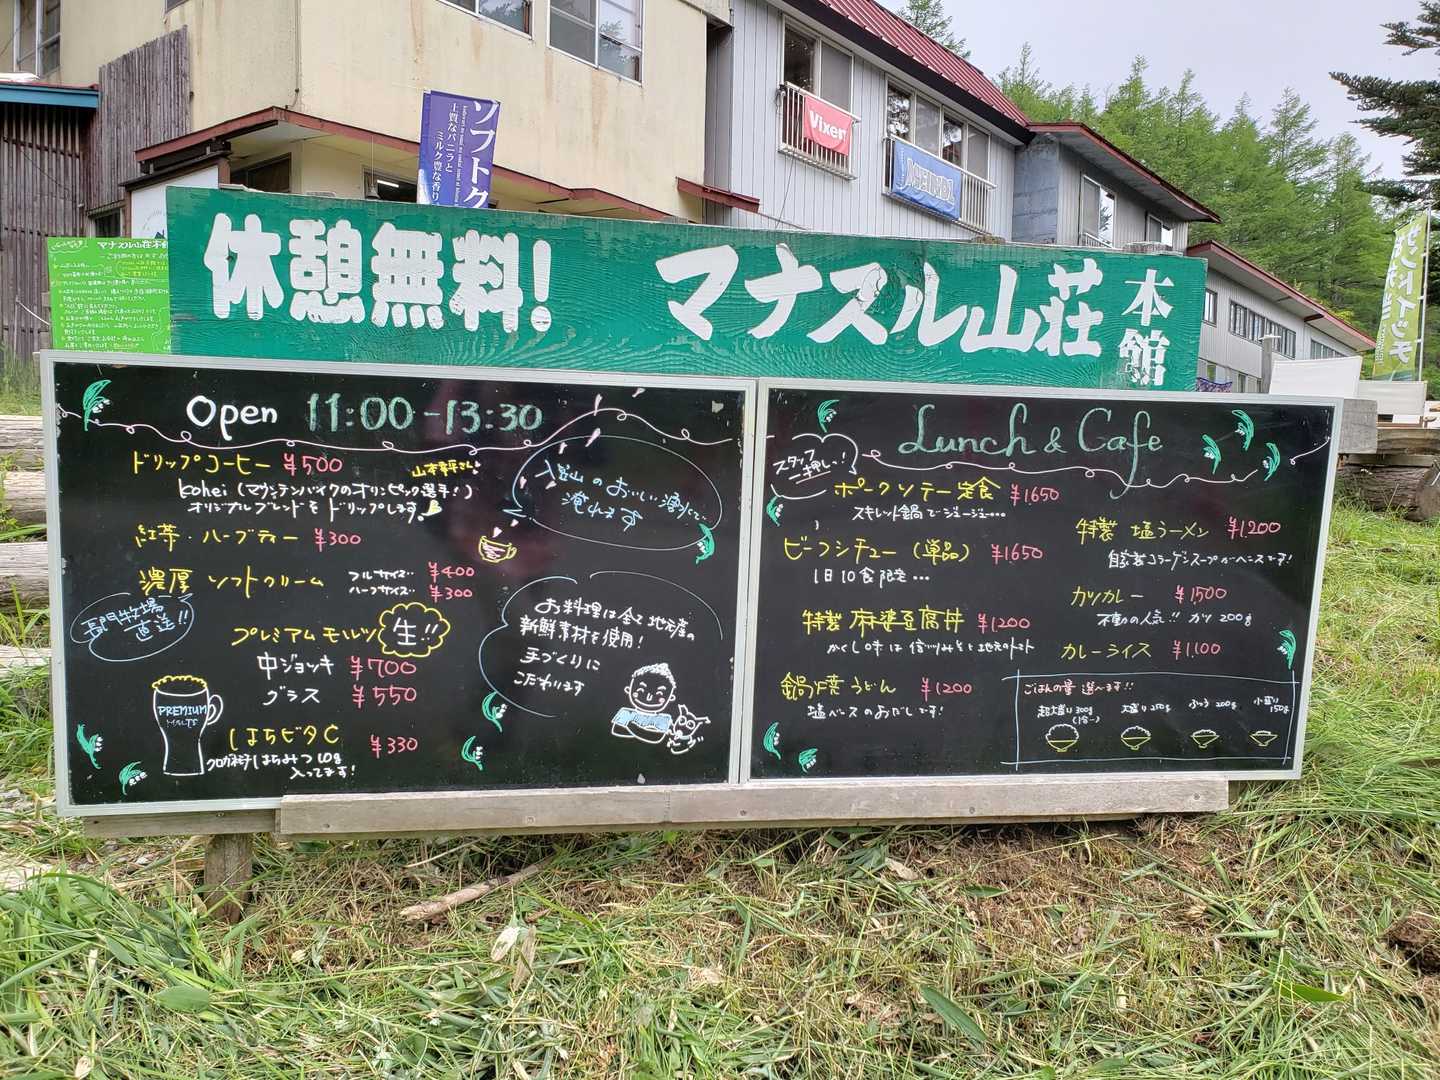 ソフトク
上質なバニラと
ミルク豊な香り
Vixen
サンドイッチ
マナスル山荘本館
休憩無料!
マナスル山荘 本館
Open 11:00-13:30
ドリップコーヒー ¥500
山本幸平さん
Kohei (マウンテンバイクのオリンピック選手!)
オリジナルブレンドをドリップします。
入笠山のおいしい湧水で
淹れます
紅茶・ハーブティー ¥300
濃厚 ソフトクリーム
フルサイズ… ¥400
ハーフサイズ… ¥300
長門牧場
直送!!
プレミアムモルツ 生!!
中ジョッキ ¥700
グラス ¥550
PREMIUM
MALT'S
はちビタC ¥330
はちみつ10g
入ってます!
お料理は全て地元産の
新鮮素材を使用!
手づくりに
こだわります
Lunch & Cafe
スタッフ
一押し〜!
ポークソテー定食 ¥1650
スキレット鍋でジュージュー…
ビーフシチュー(単品) ¥1650
1日10食限定…
特製 麻婆豆腐丼 ¥1200
かくし味は信州みそと地元のトマト
鍋焼うどん ¥1200
塩ベースのおだしです!
特製 塩ラーメン ¥1,200
自家製コラーゲンスープがベースです!
カツカレー ¥1,500
不動の人気!! カツ 200g
カレーライス ¥1,100
ごはんの量 選べます!!
超大盛り 300g
(1合〜)
大盛り 250g
ふつう 200g
小盛り
150g